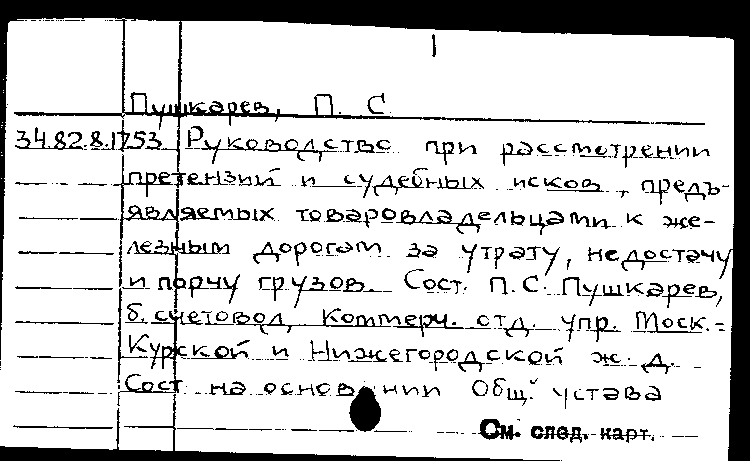 1
Пушкарев, П. С
34.82.8.1753 Руководство при рассмотрении
претензий и судебных исков, предъ-
являемых товаровладельцами к же-
лезным дорогам за утрату, недостачу
и порчу грузов. Сост. П.С. Пушкарев,
б. счетовод, Коммерч. отд. упр. Моск.-
Курской и Нижегородской ж. д.
Сост на основании Общ. устава
См. след. карт.